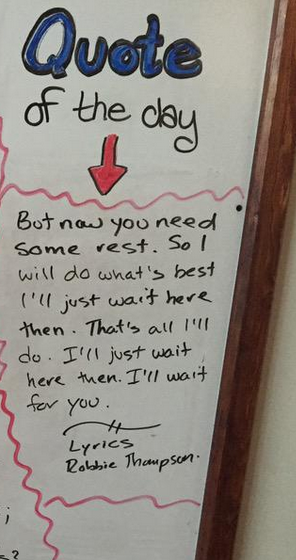 Quote
of the day
But now you need
some rest. So I
will do what's best
I'll just wait here
then. That's all I'll
do. I'll just wait
here then. I'll wait
for you.
Lyrics
Robbie Thompson.